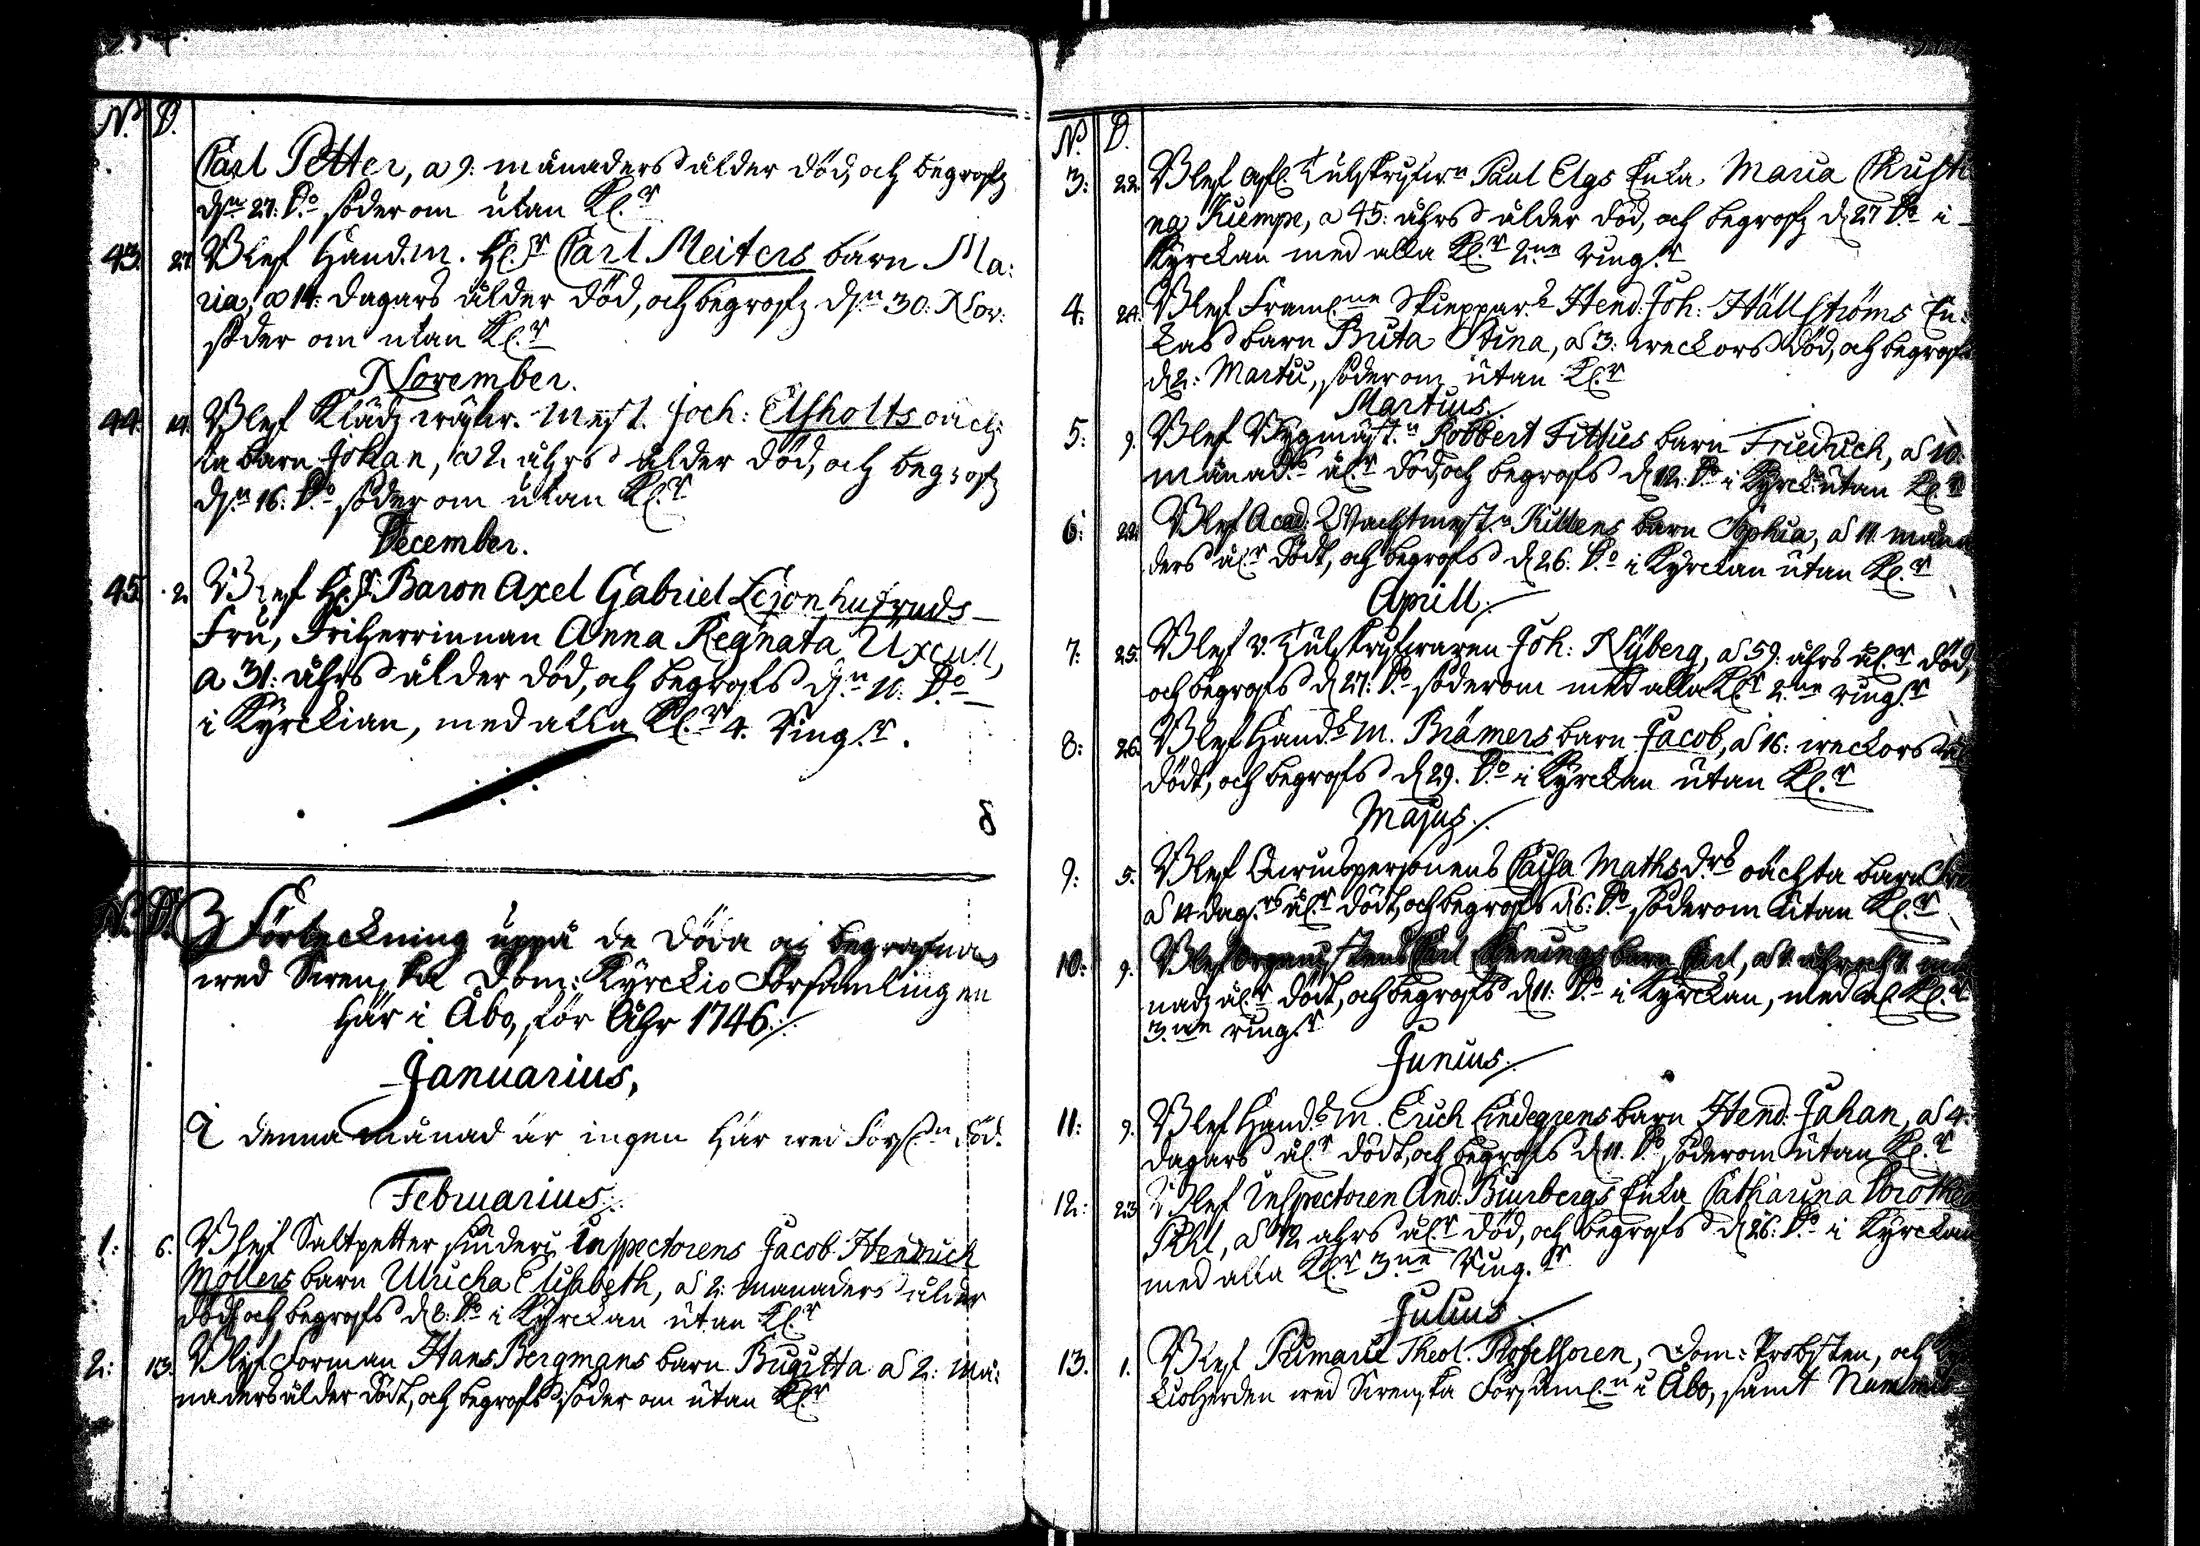 N.o D.
Carl Petter, a 9: månaders ålder död, och begrofz
d.n 27: D.o söder om utan Kl.r
43. 27. Blef Hand.m. H.r Carl Meiters barn Ma:
ria, a 14: dagars ålder död, och begrofz d.n 30: Nov:
söder om utan Kl.r
November.
44. 14. Blef Mest. Joch: Elfholts oäch:
ta barn Johan, a 2 åhrs ålder död, och begrofz
d.n 16: D.o söder om utan Kl.r
December.
45. 2. Blef H.r Baron Axel Gabriel Lejonhufvuds
Fru, Friherrinnan Anna Regnata Uxcull,
a 31: åhrs ålder död, och begrofs d.n 10: D.o
i Kyrckian, med alla Kl.r 4. Ring.r.
8
N.o D. Förteckning uppå de döda och begrafna
wed Swenska Dom: Kyrckio Församlingen
här i Åbo, för Åhr 1746.
Januarius,
I denna månad är ingen här wed Förs.n död.
Februarius.
1: 6. Blef Saltpetter siuderi Inspectorens Jacob Hendrich
Möllers barn Ulricha Elisabeth, a 2: månaders ålder
dödt och begrofs d. 8: D.o i Kyrckan utan Kl.r
2: 13. Blef Forman Hans Bergmans barn Brigitta a 2: må:
naders ålder dödt, och begrofs söder om utan Kl.r
N.o D.
3: 22. Blef Afl. Tulskrifwr.n Paul Elgs Enka, Maria Christi
na Kiempe, a 45: åhrs ålder död, och begrofz d. 27 D.o i
Kyrckan med alla Kl.r 2.ne ring.r
4: 24. Blef Framl.ne Skieppar.s Hend: Joh: Hällströms En:
kas barn Brita Stina, a 3: weckors död, och begrofs
d. 2: Martii, söder om utan Kl.r
Martius.
5: 9. Blef Bygmäst.n Robbert Fitties barn Friedrich, a 10
månad.s ål.r död, och begrofs d. 12: D.o i Kyrck: utan Kl.r
6: 22. Blef Acad: Wachtmest.n barn Sophia, a 11 måna
ders ål.r dödt, och begrofs d. 26: D.o i Kyrckan utan Kl.r
Aprill.
7: 25. Blef v. Tulskrifwaren Joh: Nyberg, a 59: åhrs ål.r död,
och begrofs d. 27: D.o söder om med alla Kl.r 2.ne ring.r
8: 26. Blef Hand.s m. Brämers barn Jacob, a 16: weckors
dödt, och begrofs d. 29. D.o i Kyrckan utan Kl.r
Majus.
9: 5. Blef Qwinspersonens Caisa Mathsd.rs oächta barn
a 14 dag.rs ål.r dödt, och begrofs d. 6: D.o söder om utan Kl.r
10: 9. Blef Organistens barn Carl,
nads ål.r dödt, och begrofs d. 11: D.o i Kyrckan, med al Kl.r
3.ne ring.r
Junius.
11: 9. Blef Hand.s m. Erich Lindegrens barn Hend: Johan, a 4:
dagars ål.r dödt, och begrofs d. 11. D.o söder om utan Kl.r
12: 23 Blef Inspectoren And: Biurbergs Enka Catharina Dorothea
Pihl, a 72 åhrs ål.r död, och begrofs d. 26: D.o i Kyrckan
med alla Kl.r 3.ne Ring.r
Julius.
13. 1. Blef Primarie Theol. Professoren, Dom: Probsten, och
kioherden wed Swenska Församl.n i Åbo, samt